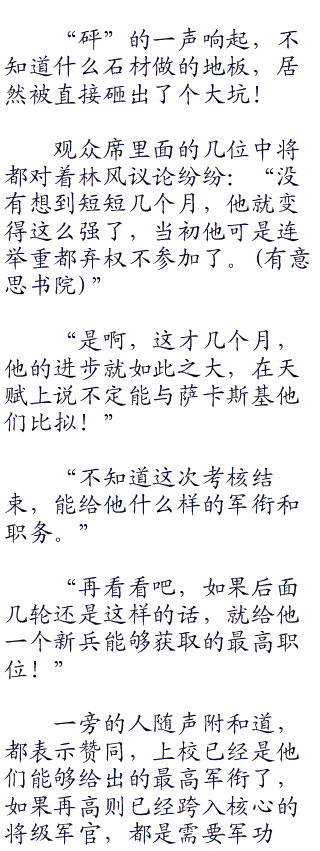 “砰”的一声响起，不
知道什么石材做的地板，居
然被直接砸出了个大坑！
观众席里面的几位中将
都对着林风议论纷纷：“没
有想到短短几个月，他就变
得这么强了，当初他可是连
举重都弃权不参加了。(有意
思书院)”
“是啊，这才几个月，
他的进步就如此之大，在天
赋上说不定能与萨卡斯基他
们比拟！”
“不知道这次考核结
束，能给他什么样的军衔和
职务。”
“再看看吧，如果后面
几轮还是这样的话，就给他
一个新兵能够获取的最高职
位！”
一旁的人随声附和道，
都表示赞同，上校已经是他
们能够给出的最高军衔了，
如果再高则已经跨入核心的
将级军官，都是需要军功